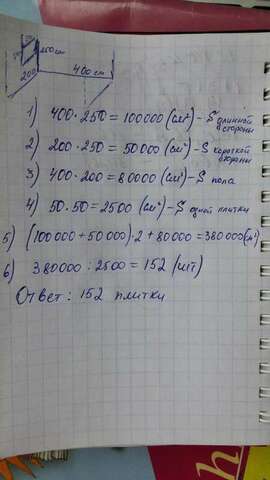 200
400 см
1) 400 · 250 = 100000 (см²) – S длинной стороны
2) 200 · 250 = 50000 (см²) – S короткой стороны
3) 400 · 200 = 80000 (см²) – S пола
4) 50 · 50 = 2500 (см²) – S одной плитки
5) (100000 + 50000) · 2 + 80000 = 380000 (см²)
6) 380000 : 2500 = 152 (шт)
Ответ: 152 плитки